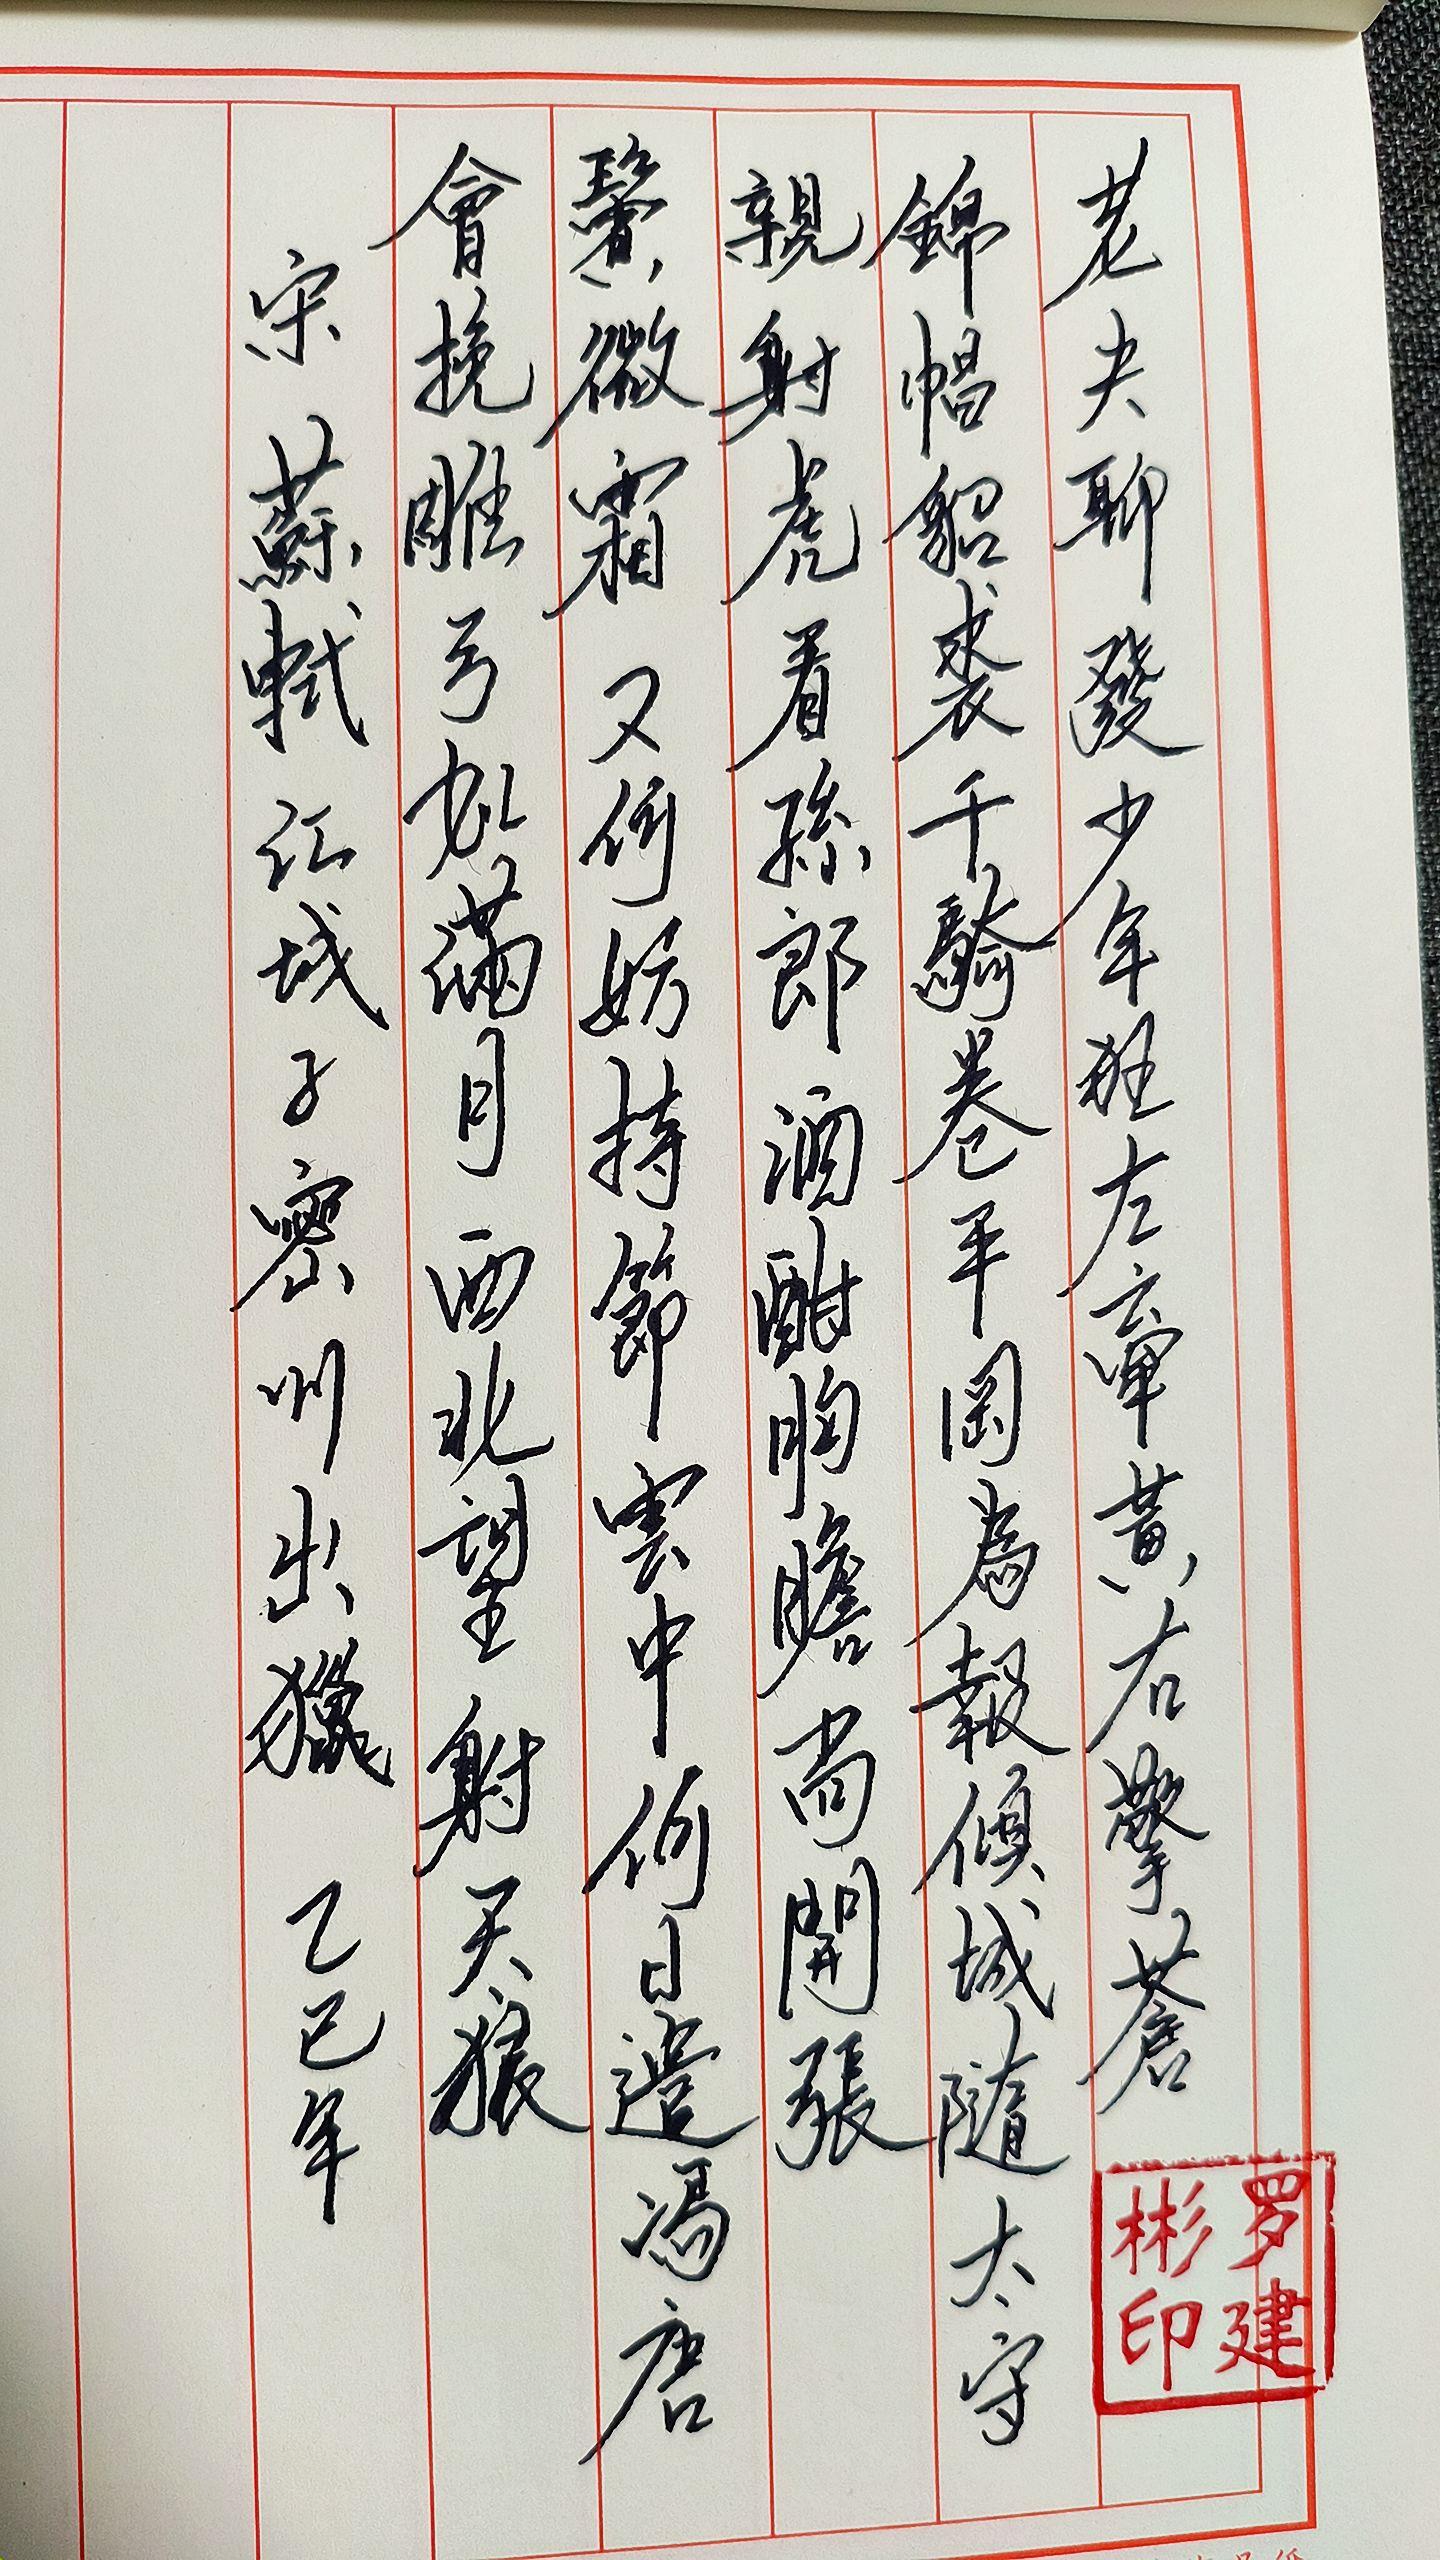 老夫聊發少年狂左牽黃右擎蒼
錦帽貂裘千騎卷平岡為報傾城隨太守
親射虎看孫郎酒酣胸膽尚開張
鬢微霜又何妨持節雲中何日遣馮唐
會挽雕弓如滿月西北望射天狼
宋蘇軾江城子密州出獵乙巳年
罗建
彬印